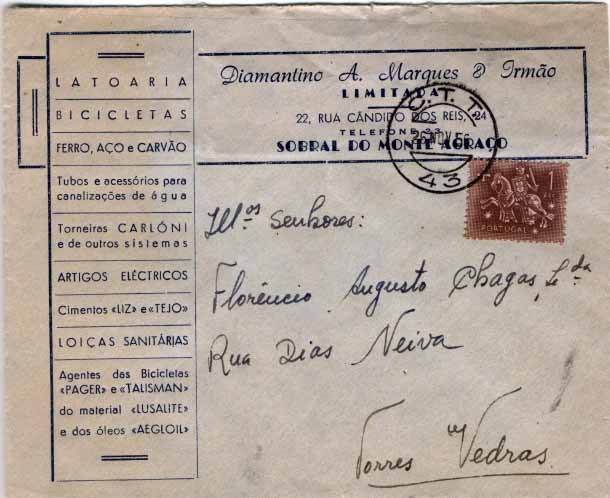 LATOARIA
BICICLETAS
FERRO, AÇO e CARVÃO
Tubos e acessórios para
canalizações de água
Torneiras CARLÓNI
e de outros sistemas
ARTIGOS ELÉCTRICOS
Cimentos «LIZ» e «TEJO»
LOIÇAS SANITÁRIAS
Agentes das Bicicletas
«PAGER» e «TALISMAN»
do material «LUSALITE»
e dos óleos «AEGLOIL»
Diamantino A. Marques & Irmão
LIMITADA
22, RUA CÂNDIDO DOS REIS, 24
TELEFONE 23
SOBRAL DO MONTE AGRAÇO
C.T.T.
26 NOV 56
43
1
PORTUGAL
Ill.os Senhores:
Florêncio Augusto Chagas, L.da
Rua Dias Neiva
Torres Vedras